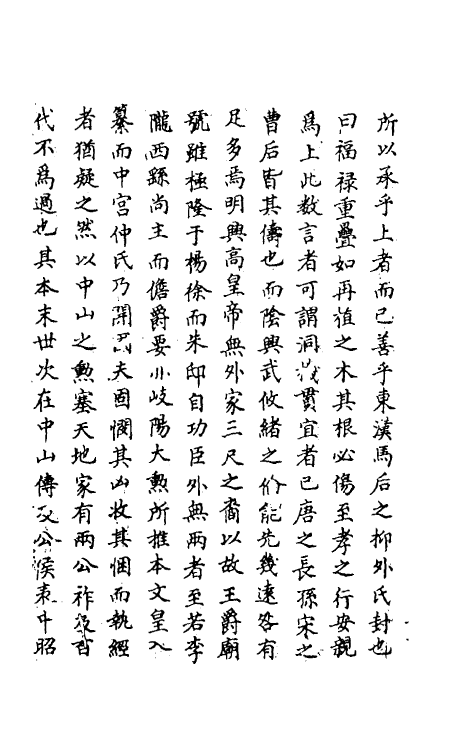 所以承乎上者而已善乎東漢馬后之抑外氏封也
曰福祿重疊如再殖之木其根必傷至孝之行安親
為上此数言者可謂洞貫宜者已唐之長孫宋之
曹后皆其儔也而陰興武攸緒之能先幾遠咎有
足多焉明興高皇帝無外家三尺之裔以故王爵廟
號雖極隆于楊徐而朱邸自功臣外無兩者至若李
隴西繇尚主而儋爵要小岐陽大勲所推本文皇入
纂而中宮仲氏乃夫固憫其凶收其悃而執經
者猶疑之然以中山之勲塞天地家有兩公祚及百
代不為過也其本末世次在中山傳及公侯表中昭